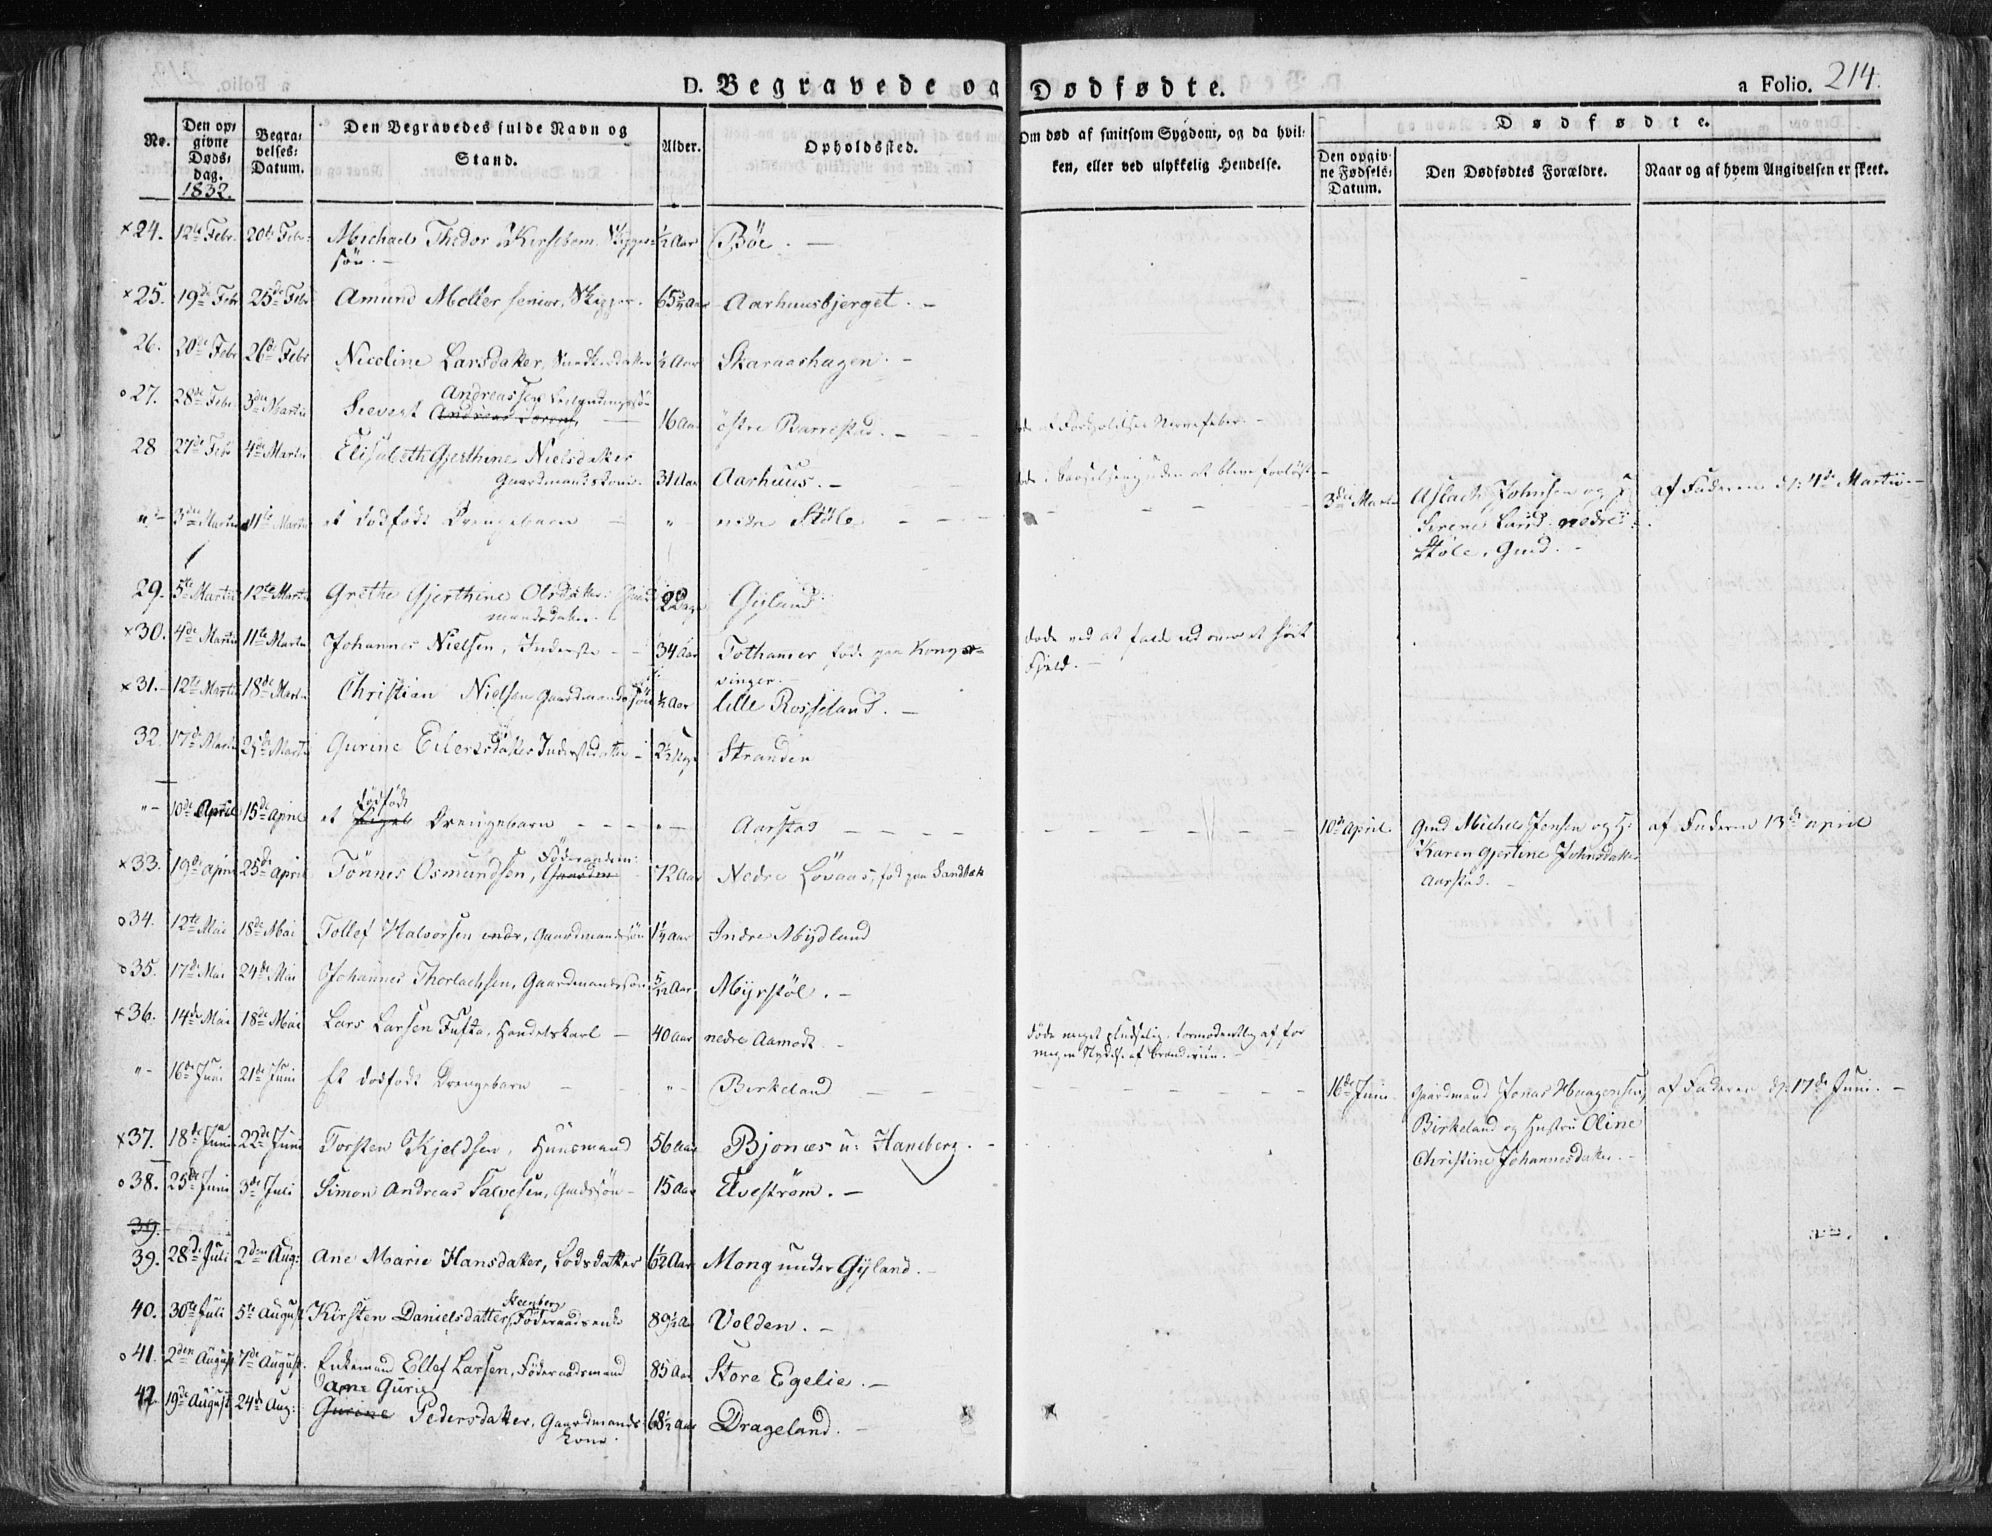 D. Begravede og Dødfødte.
a Folio. 214.
No.
Den opgivne Døds-dag. 1832.
Begravelses-Datum.
Den Begravedes fulde Navn og Stand.
Alder.
Opholdssted.
Om død af smitsom Sygdom, og da hvilken, eller ved ulykkelig Hendelse.
Dødfødte.
Den opgivne Fødsels-Datum.
Den Dødfødtes Forældre.
Naar og af hvem Angivelsen er skeet.
×24. 12te Febr. 20de Febr. Michael Thodor Kirsebom, Skippersøn. ½ Aar Böe. —
×25. 19de Febr 25de Febr Amund Moller senior, Skipper. 65 Aar Aarhuusbjerget. —
26. 20de Febr 26de Febr Nicoline Larsdatter, ¼ Aar Skaraashagen. —
o27. 28de Febr. 3die Martii Sievert Andreassen 16 Aar östre Barrestad. — Nervefeber. —
28 27de Febr 4de Martii Elisabeth Gjerthine Nielsdatter Gaardmandskone. 31 Aar Aarhuus. — Barselseng uden at blive forløst —
" — 3die Martii 11te Martii et dodfodt Drengebarn — " nedre Stöle — — 3die Martii Aslach Johnsen og H: Sirene Larsd. nedre Stöle, Gmd. — af Faderen d: 4de Martii —
29. 5te Martii 12te Martii Grethe Gjerthine Olsdatter Gaardmandsdatter. 2 Dage Gyland
×30. 4de Martii 11te Martii Johannes Nielsen, Inderste — 34 Aar Tothamer föd paa Kongsvinger. döde ved at falde ud over et höit Fjeld. —
×31. 12te Martii 18de Martii Christian Nielsen Gaardmandssön ¼ Aar lille Rosseland. —
32. 17de Martii 25de Martii Gurine Eilertsdatter Inderstedatter — 2½ Stranden
" — 10de April 15de April et dödfödt Drengebarn — — — " — Aarstad — — — 10de April. Gmd Michel Jensen og H: Karen Gjertine Johnsdatter Aarstad. — af Faderen 13de April
×33. 19de April 25de April Tönnes Osmundsen, Föderaadsm: 72 Aar Nedre Lövaas, föd paa Sandbæk
o34. 12te Mai 18de Mai Tollef Halvorsen, Gaardmandssön 1¼ Aar Indre Mydland
o35. 17de Mai 24de Mai Johannes Thorlachsen, Gaardmandssön 5/12 Aar Myrstöl. —
×36. 14de Mai 18de Mai Lars Larsen Tufta, Handelskarl — 40 Aar nedre Aamodt — döde meget pludselig, formodentlig af for megen Nydelse af Brændeviin. —
" — 16de Juni 21de Juni Et dodfodt Drengebarn — — " — Birkeland — — 16de Juni Gaardmand Jonas Haagensen, Birkeland og Hustru Oline Christine Johannesdatter. — af Faderen d: 17de Juni. —
×37. 18de Juni 22de Juni Torsten Kjeldsen, Huusmand 56 Aar Bjonæs u: Haneberg. —
o38. 25de Juni 3de Juli Simon Andreas Salvesen, Gmdssön — 15 Aar Elveström. —
39.
39. 28de Juli 2den Aug: Ane Marie Hansdatter, Lodsdatter 6½ Aar Mong under Gyland. —
40. 30te Juli 5te August Kirsten Danielsdatter Steenberg, Föderaadsenke 89½ Aar Volden. —
o41. 2den August 7de August. Enkemand Ellef Larsen, Föderaadsmand 85 Aar Store Egelie. —
42. 19de August 24de Aug: Ane Guru Gurine Pedersdatter, Gaardmandskone. 68½ Aar Drageland. —